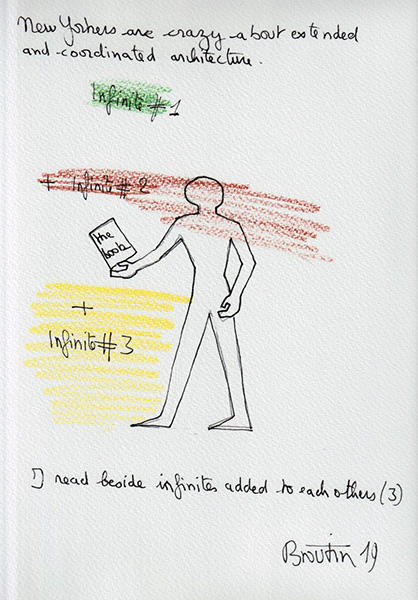 New Yorkers are crazy about extended
and coordinated architecture.
Infinite #1
+ Infinite #2
the
book
+
Infinite #3
I read beside infinites added to each others (3)
Broutin 19